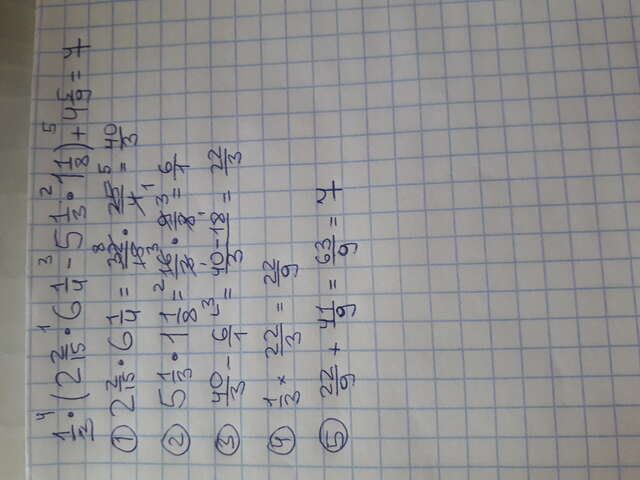 1/3 · (2 2/15 · 6 1/4 - 5 1/3 · 1 1/8) + 4 5/9 = 7
① 2 2/15 · 6 1/4 = 32/15 · 25/4 = 40/3
② 5 1/3 · 1 1/8 = 16/3 · 9/8 = 6/1
③ 40/3 - 6/1 = 40-18/3 = 22/3
④ 1/3 × 22/3 = 22/9
⑤ 22/9 + 41/9 = 63/9 = 7